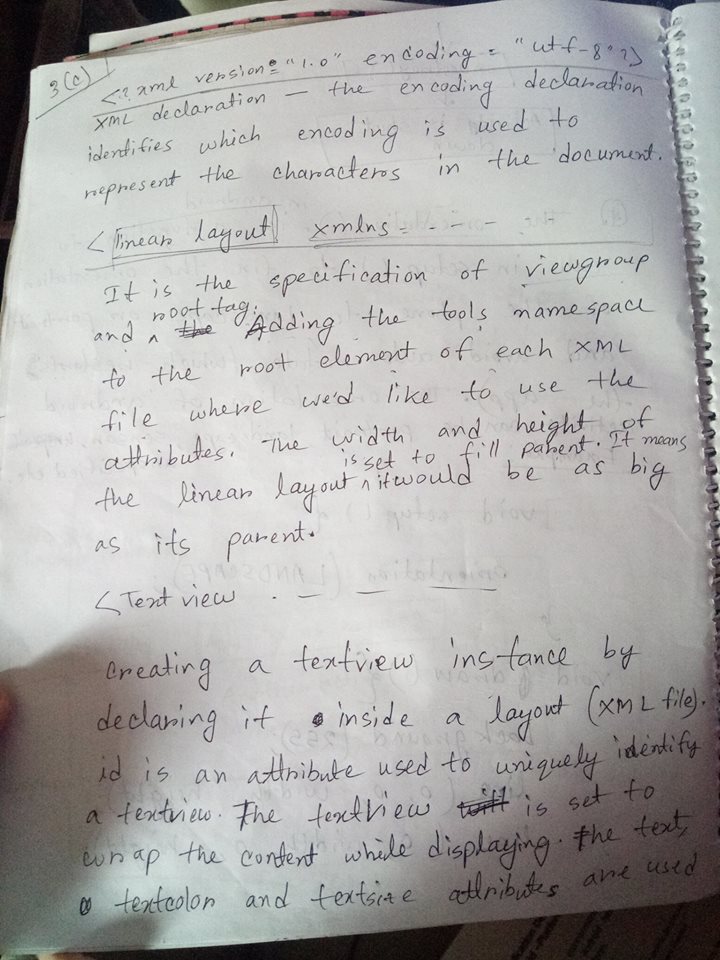 3(c)
<? xml version= "1.0" encoding = "utf-8"?>
XML declaration — the encoding declaration
identifies which encoding is used to
represent the characters in the document.
< linear layout xmlns= - - -
It is the specification of viewgroup
and root tag. Adding the tools namespace
to the root element of each XML
file where we'd like to use the
attributes. The width and height of
the linear layout is set to fill parent. It means it would be as big
as its parent.
< Text view . — — —
Creating a textview instance by
declaring it inside a layout (XML file).
id is an attribute used to uniquely identify
a textview. The textview is set to
wrap the content while displaying. The text,
textcolor and textsize attributes are used